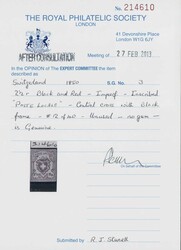 No 214610
THE ROYAL PHILATELIC SOCIETY
LONDON
41 Devonshire Place
London W1G 6JY
AFTER CONSULTATION
Meeting of 27 FEB 2013
In the OPINION of The EXPERT COMMITTEE the item
described as
Switzerland 1850 S.G. No. 3
2½r - Black and Red - Imperf - Inscribed
"POSTE LOCALE" - Central cross with black
frame - # 12 of 40 - Unused - no gum -
is Genuine.
214610
On behalf of the Committee
Submitted by R. I.